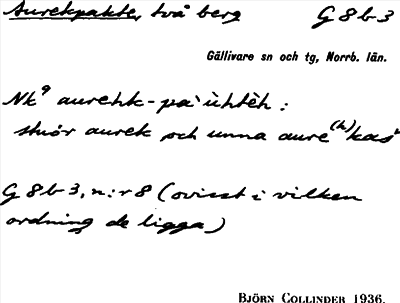 Aurekpakte, två berg G 8 b 3
Gällivare sn och tg, Norrb. län.
Nk⁹ aurehk-pa'ùhtèh :
stuor aurek och unna aure(h)kas'
G 8 b 3, n:r 8 (ovisst i vilken
ordning de ligga)
BJÖRN COLLINDER 1936.